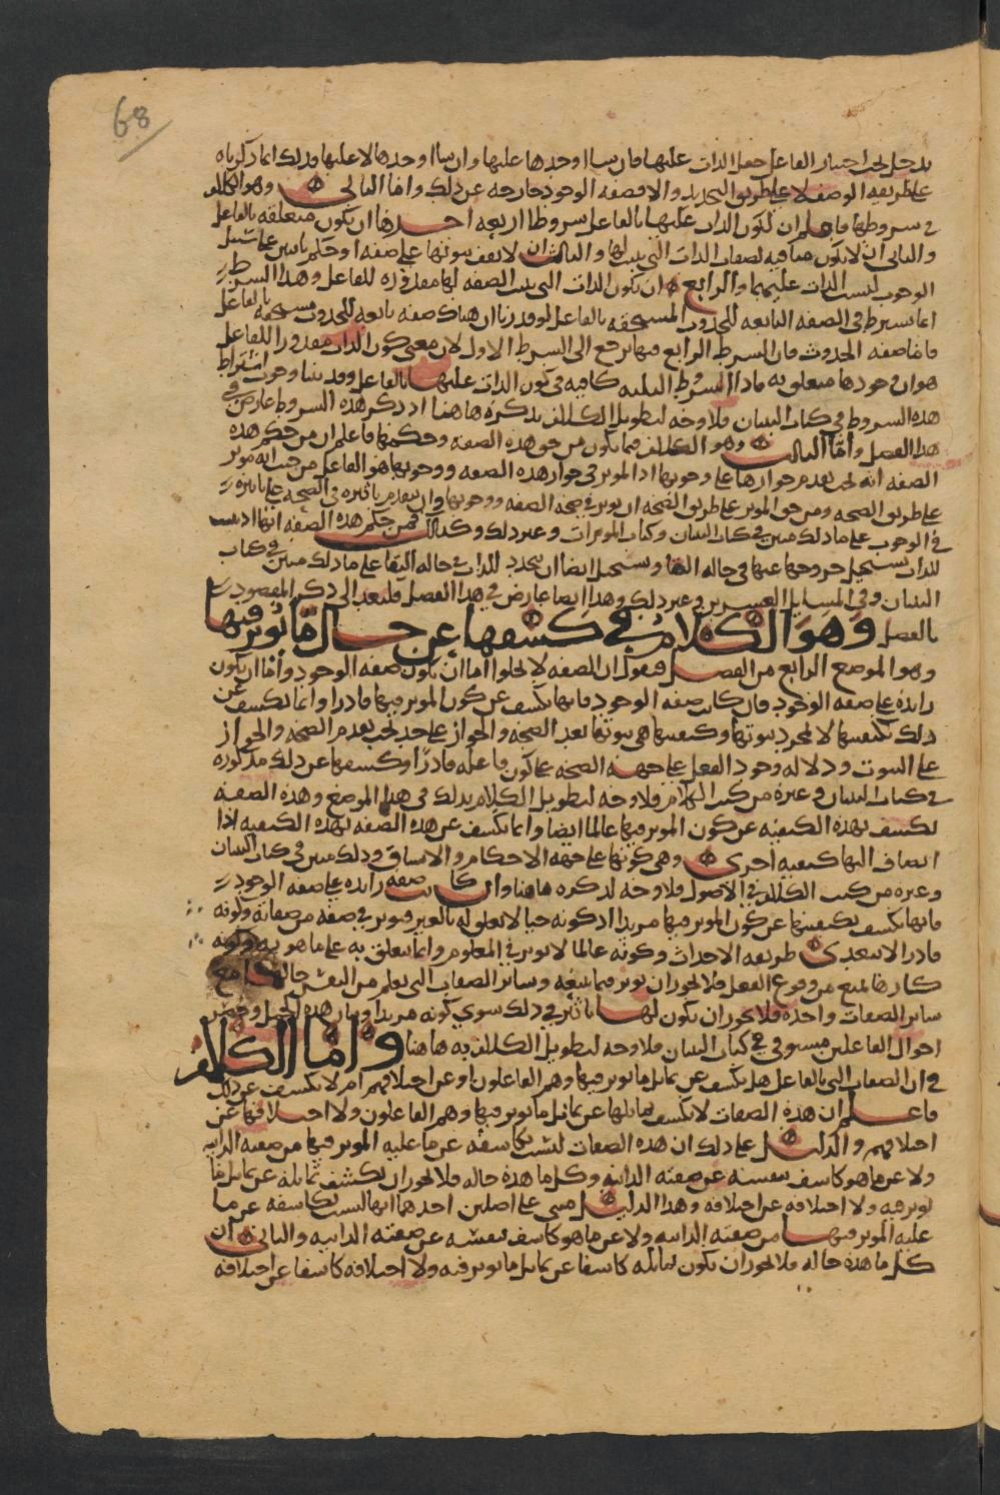 68
يدخل تحت اختيار الفاعل جعل الذات عليها فان شا اوجدها عليها وان شا اوجدها لا عليها وذلك انما ذكرناه
على طريقه الوصف لا على طريق التحديد والا فصفه الوجود خارجه عن ذلك واما الثاني وهو الكلام
في شروطها فاعلم ان لكون الذات عليها بالفاعل شروطا اربعه احدها ان يكون متعلقه بالفاعل
والثاني ان لا يكون منافيه لصفات الذات التي يثبت لها والثالث ان لا يقف ثبوتها على صفه او حكم يأتيين على سبيل
الوجوب ليست الذات عليهما والرابع ان يكون الذات التي يثبت الصفه لها مقدوره للفاعل وهذا الشرط
انما يشترط في الصفه التابعه للحدوث المستحقه بالفاعل لو قدرنا ان هناك صفه تابعه للحدوث مستحقه بالفاعل
فاما صفه الحدوث فان الشرط الرابع فيها يرجع الى الشرط الاول لان معنى كون الذات مقدورا للفاعل
هو ان وجودها متعلق به فاذا الشروط الثلثه كافيه في كون الذات عليها بالفاعل وقد بينا وجوب اشتراط
هذه الشروط في كتاب البيان فلا وجه لتطويل الكلام بذكره هاهنا اذ ذكر هذه الشروط عارض في
هذا الفصل واما الثالث وهو الكلام فيما يكون من حق هذه الصفه وحكمها فاعلم ان من حكم هذه
الصفه انه يجب تقدم جوازها على وجوبها اذ الموثر في جواز هذه الصفه ووجوبها هو الفاعل من حيث انه موثر
على طريق الصحه ومن حق الموثر على طريق الصحه ان يوثر في صحه الصفه ووجوبها وان يتقدم تاثيره في الصحه على تاثيره
في الوجوب على ما ذلك مبين في كتاب البيان وكتاب الموثرات وغير ذلك وكذلك فمن حكم هذه الصفه انها اذا ثبتت
للذات يستحيل خروجها عنها في حاله البقا ويستحيل ايضا ان يتجدد للذات حاله البقا على ما ذلك مبين في كتاب
البيان وفي المسايل العشرين وغير ذلك وهذا ايضا عارض في هذا الفصل فلنعد الى ذكر المقصود
بالفصل وهو الكلام في كشفها عن حال ما يوثر فيها
وهو الموضع الرابع من الفصل فنقول ان الصفه لا يخلوا اما ان يكون صفه الوجود واما ان يكون
زائده على صفه الوجود فان كانت صفه الوجود فانها تكشف عن كون الموثر فيها قادرا وانما تكشف عن
ذلك بكيفيتها لا بمجرد ثبوتها وكيفيتها هي ثبوتها بعد الصحه والجواز على حد يجب تقدم الصحه والجواز
على الثبوت ودلاله وجود الفعل على جهه الصحه على كون فاعله قادرا وكشفها عن ذلك مذكوره
في كتاب البيان وغيره من كتب الكلام فلا وجه لتطويل الكلام بذلك في هذا الموضع وهذه الصفه
تكشف بهذه الكيفيه عن كون الموثر فيها عالما ايضا وانما تكشف عن هذه الصفه بهذه الكيفيه اذا
انضاف اليها كيفيه اخرى وهي كونها على جهه الاحكام والاتساق وذلك مبين في كتاب البيان
وغيره من كتب الكلام في الاصول فلا وجه لذكره هاهنا وان كانت صفه زائده على صفه الوجود
فانها تكشف بكيفيتها عن كون الموثر فيها مريدا اذ كونه حيا لا تعلق له بالغير فيوثر في صفه من صفاته وكونه
قادرا لا يتعدى طريقه الاحداث وكونه عالما لا يوثر في المعلوم وانما يتعلق به على ما هو به وكونه
كارها يمنع من وقوع الفعل فلا يجوز ان يوثر فيما يتبعه وسائر الصفات التي يعلم من النفس حالها مع
سائر الصفات واحده فلا يجوز ان يكون لها تاثير في ذلك سوى كونه مريدا وبيان هذه الجمل
احوال الفاعلين مستوفى في كتاب البيان فلا وجه لتطويل الكلام به هاهنا واما الكلام
في ان الصفات التي بالفاعل هل تكشف عن تماثل ما يوثر فيها وهم الفاعلون او عن اختلافهم ام لا تكشف عن ذلك
فاعلم ان هذه الصفات لا تكشف تماثلها عن تماثل ما يوثر فيها وهم الفاعلون ولا اختلافها عن
اختلافهم والدليل على ذلك ان هذه الصفات ليست بكاشفه عن ما عليه الموثر فيها من صفته الذاتيه
ولا عن ما هو كاشف بنفسه عن صفته الذاتيه وكل ما هذه حاله فلا يجوز ان يكشف تماثله عن تماثل ما
يوثر فيه ولا اختلافه عن اختلافه وهذا الدليل مبني على اصلين احدهما انها ليست بكاشفه عن ما
عليه الموثر فيها من صفته الذاتيه ولا عن ما هو كاشف بنفسه عن صفته الذاتيه والثاني ان
كل ما هذه حاله فلا يجوز ان يكون تماثله كاشفا عن تماثل ما يوثر فيه ولا اختلافه كاشفا عن اختلافه